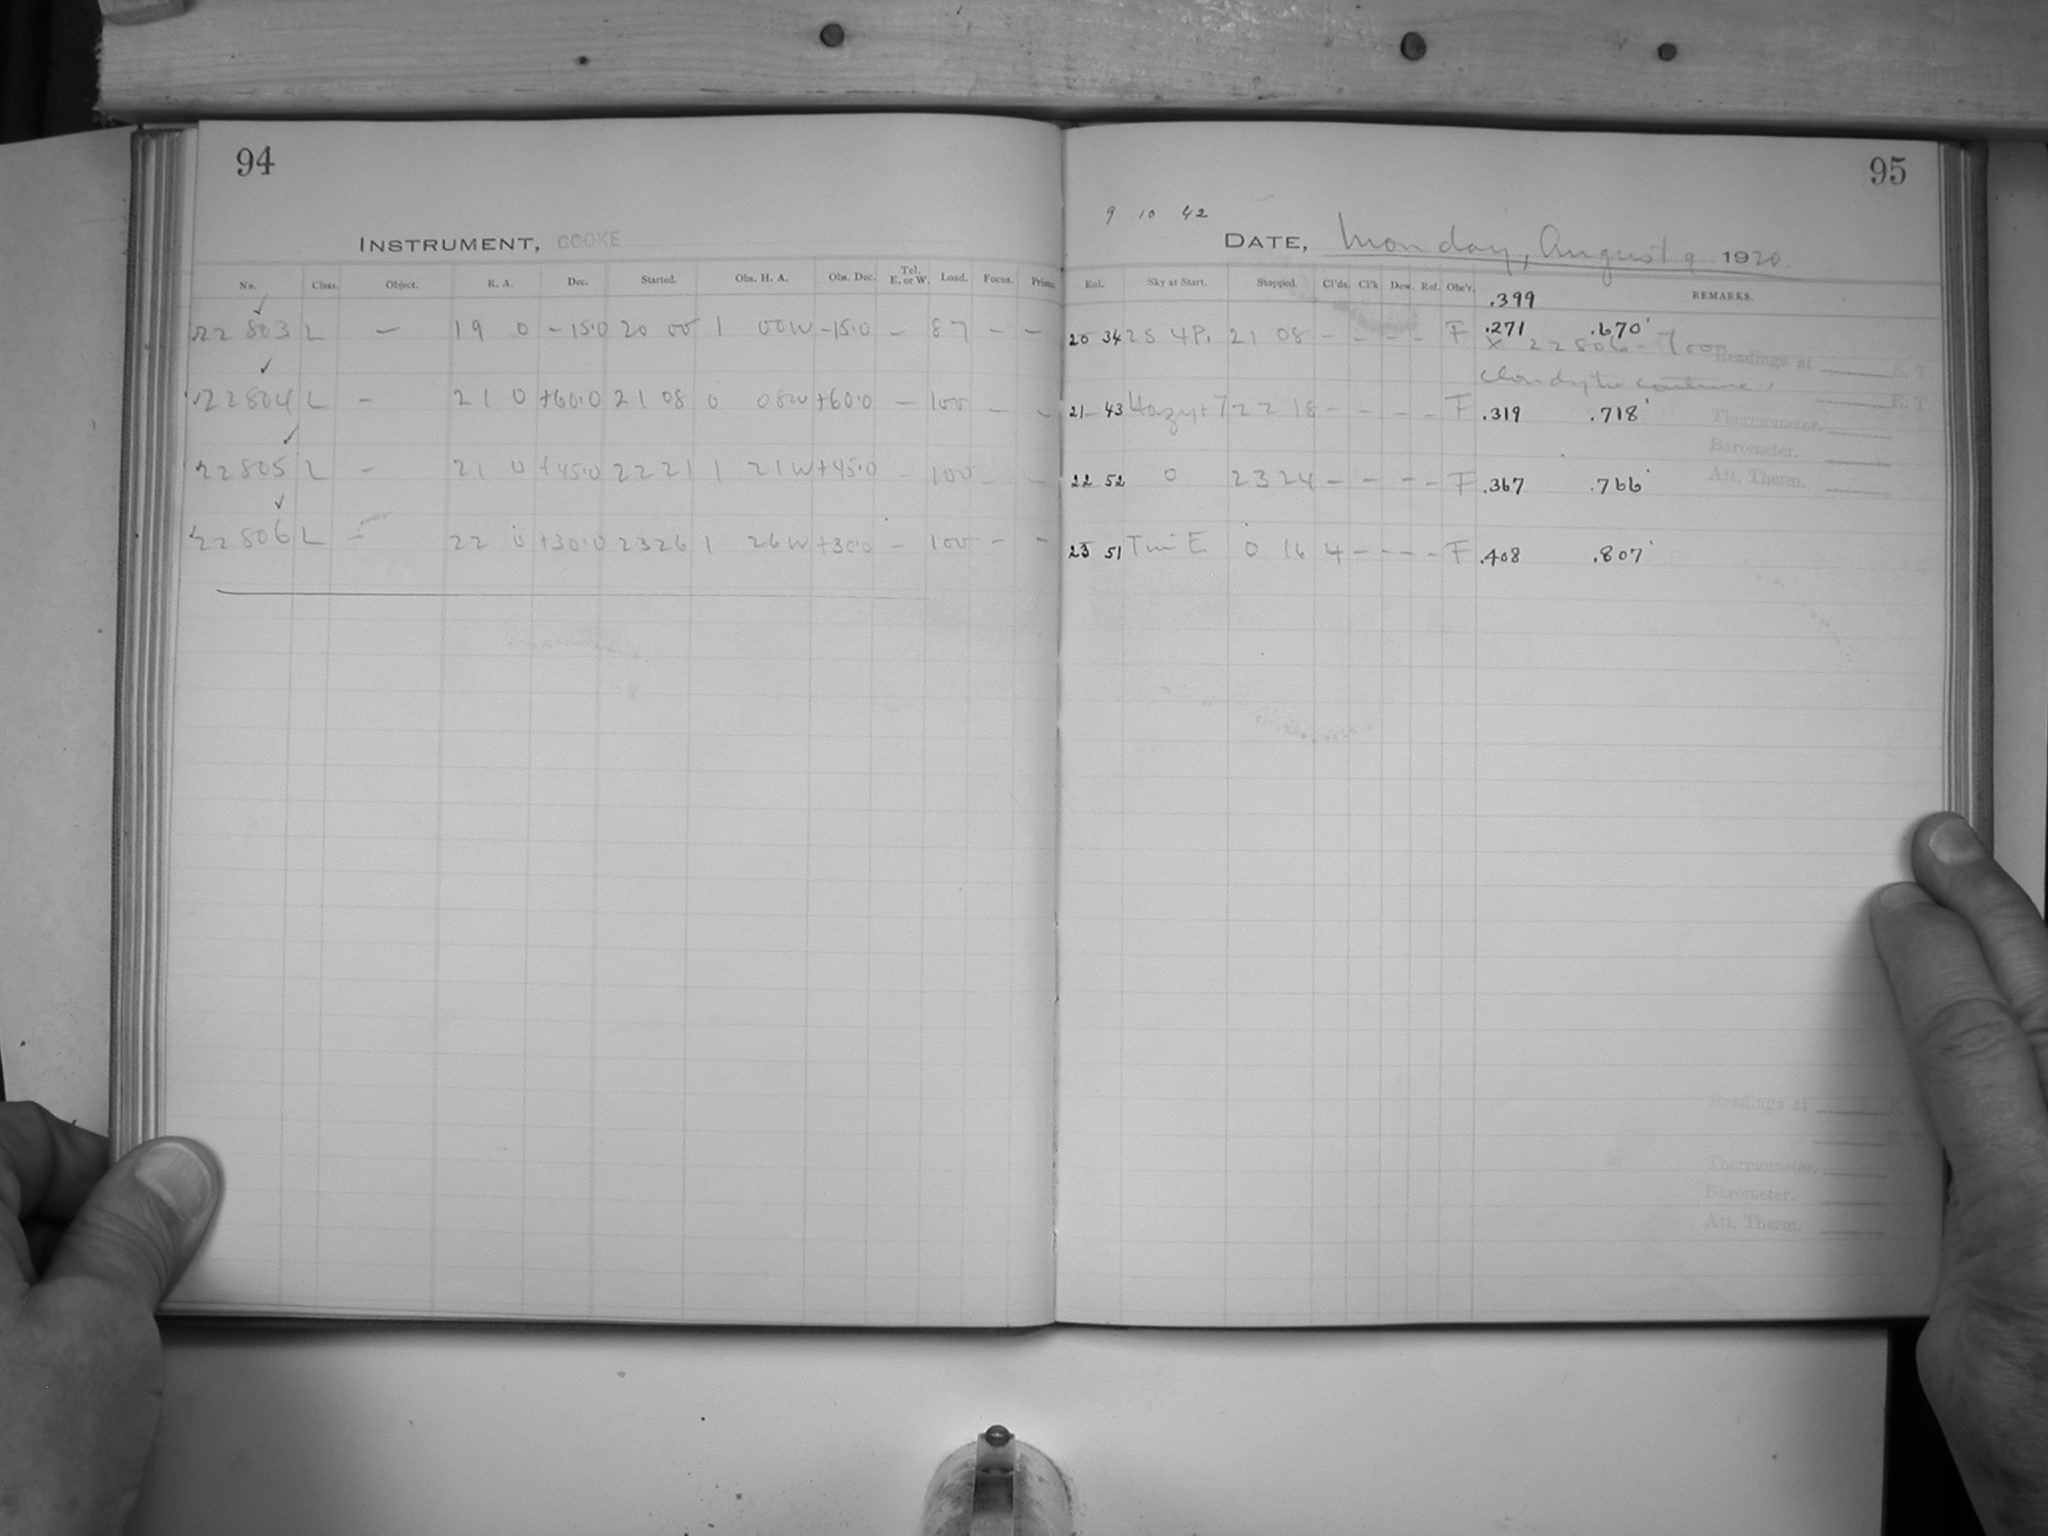 94
INSTRUMENT, COOKE
No. Class. Object. R. A. Dec. Started. Obs. H. A. Obs. Dec. Tel. E. or W. Load. Focus. Prisms.
22803 L – 19 0 -15.0 20 00 1 00W -15.0 – 87 – –
22804 L – 21 0 +60.0 21 08 0 08W +60.0 – 100 – –
22805 L – 21 0 +45.0 22 21 1 21W +45.0 – 100 – –
22806 L – 22 0 +30.0 23 26 1 26W +30.0 – 100 – –
95
9 10 42
DATE, Monday, August 9 1920.
Eul. Sky at Start. Stopped. Cl'ds. Cl'k Dew. Ref. Obs'r. REMARKS.
.399
20 34 2S 4P. 21 08 – – – – F .271 .670
x 22806 – Too
cloudy to continue.
Readings at S. T.
E. T.
21 43 Hazy + 7 22 18 – – – – F .319 .718
Thermometer,
Barometer,
22 52 0 23 24 – – – – F .367 .766
Att. Therm.
23 51 Twi E 0 16 4 – – – – F .408 .807
Readings at S. T.
E. T.
Thermometer,
Barometer,
Att. Therm.